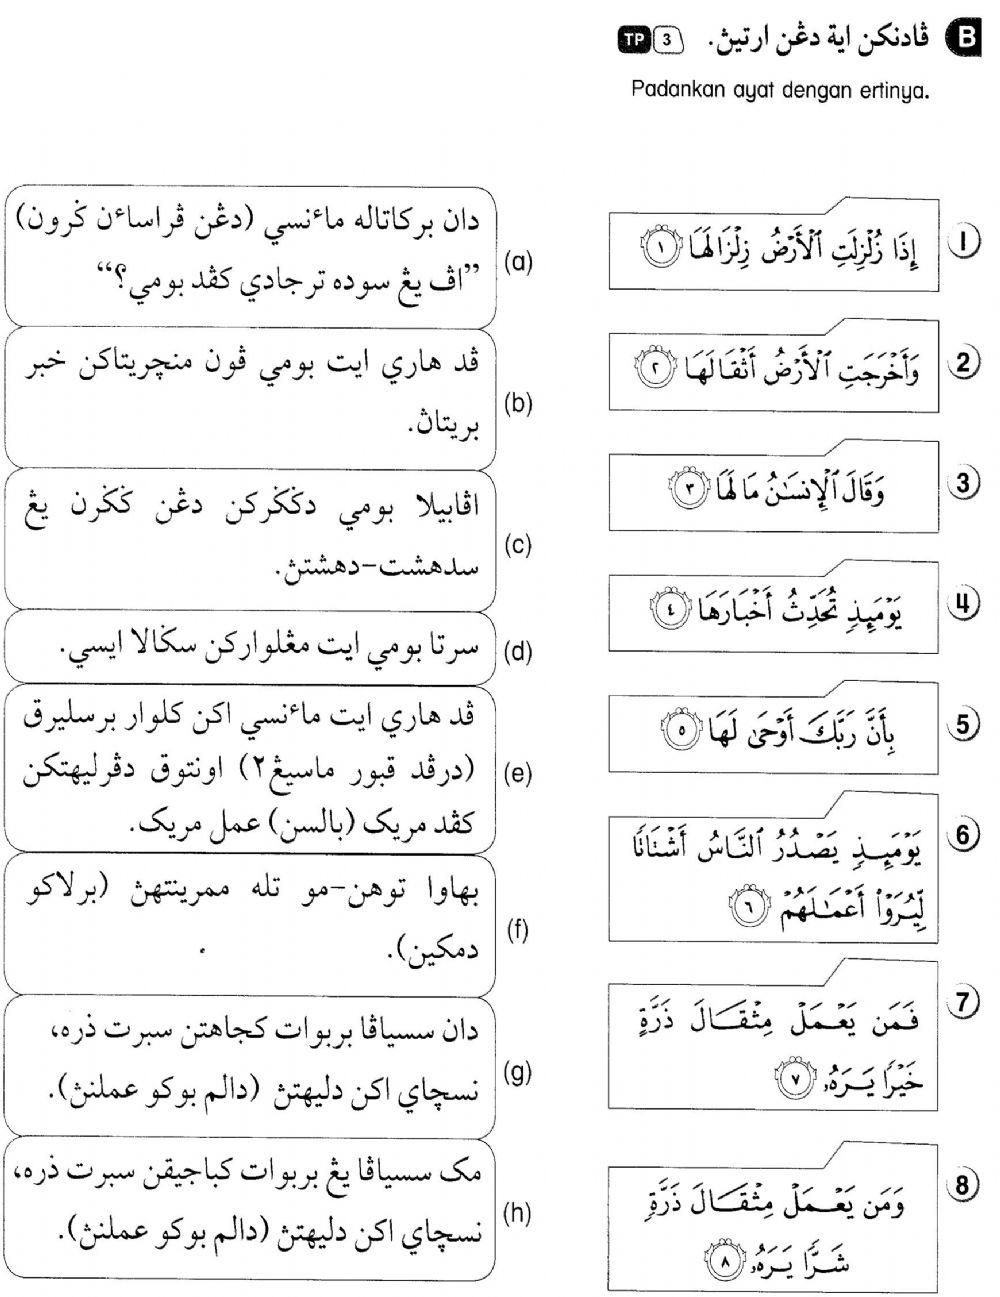 B ڤادنکن اية دڠن ارتيڽ. TP 3
Padankan ayat dengan ertinya.
1 إِذَا زُلْزِلَتِ ٱلْأَرْضُ زِلْزَالَهَا ١
2 وَأَخْرَجَتِ ٱلْأَرْضُ أَثْقَالَهَا ٢
3 وَقَالَ ٱلْإِنسَٰنُ مَا لَهَا ٣
4 يَوْمَئِذٍ تُحَدِّثُ أَخْبَارَهَا ٤
5 بِأَنَّ رَبَّكَ أَوْحَىٰ لَهَا ٥
6 يَوْمَئِذٍ يَصْدُرُ ٱلنَّاسُ أَشْتَاتًا
لِّيُرَوْا۟ أَعْمَٰلَهُمْ ٦
7 فَمَن يَعْمَلْ مِثْقَالَ ذَرَّةٍ
خَيْرًا يَرَهُۥ ٧
8 وَمَن يَعْمَلْ مِثْقَالَ ذَرَّةٍ
شَرًّا يَرَهُۥ ٨
(a) دان برکاتاله ماءنسي (دڠن ڤراساءن ݢرون)
”اڤ يڠ سوده ترجادي کڤد بومي؟“
(b) ڤد هاري ايت بومي ڤون منچريتاکن خبر
بريتاڽ.
(c) اڤابيلا بومي دݢݢرکن دڠن ݢݢرن يڠ
سدهشت-دهشتڽ.
(d) سرتا بومي ايت مڠلوارکن سݢالا ايسي.
(e) ڤد هاري ايت ماءنسي اکن کلوار برسليرق
(درڤد قبور ماسيڠ٢) اونتوق دڤرليهتکن
کڤد مريک (بالسن) عمل مريک.
(f) بهاوا توهن-مو تله ممرينتهڽ (برلاکو
دمکين).
(g) دان سسياڤا بربوات کجاهتن سبرت ذره،
نسچاي اکن دليهتڽ (دالم بوکو عملنڽ).
(h) مک سسياڤا يڠ بربوات کباجيقن سبرت ذره،
نسچاي اکن دليهتڽ (دالم بوکو عملنڽ).